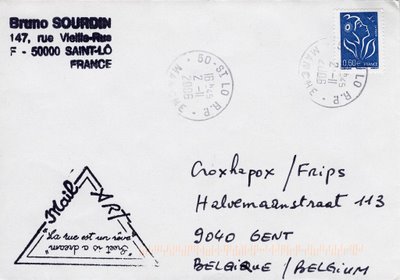 Bruno SOURDIN
147, rue Vieille-Rue
F - 50000 SAINT-LÔ
FRANCE
50-ST LO R.P.
16H45
2-11
2006
MANCHE
0,60€
Mail ART
"La rue est un rêve
Street is a dream"
Croxhapox / Frips
Halvemaanstraat 113
9040 GENT
BELGIQUE / BELGIUM